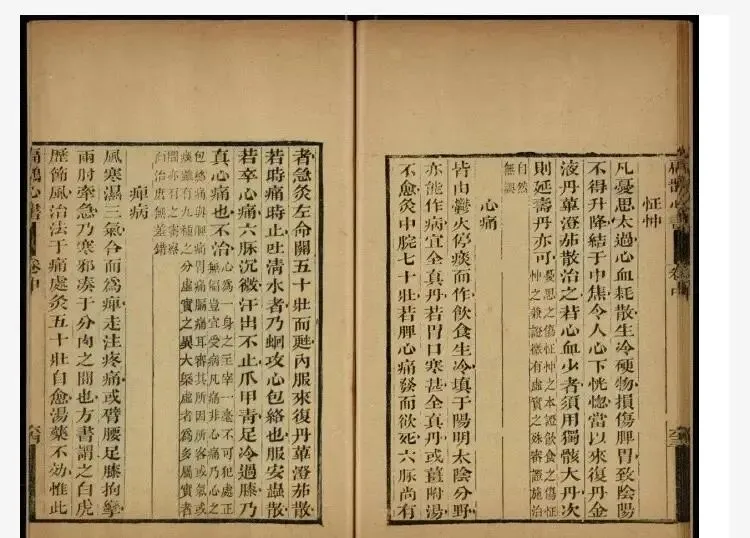 怔忡
凡憂思太過心血耗散生冷硬物損傷脾胃致陰陽
不得升降結于中焦令人心下恍惚當以來復丹金
液丹蓽澄茄散治之若心血少者須用獨骸大丹次
則延壽丹亦可
憂思之傷怔忡之本證飲食之傷怔
忡之兼證微有虛實之殊審證施治
自然
無誤
心痛
皆由鬱火停痰而作飲食生冷填于陽明太陰分野
亦能作病宜全真丹若胃口寒甚全真丹或薑附湯
不愈灸中脘七十壯若脾心痛發而欲死六脈尚有
者急灸左命關五十壯而甦內服來復丹蓽澄茄散
若時痛時止吐清水者乃蛔攻心包絡也服安蟲散
若卒心痛六脈沉微汗出不止爪甲青足冷過膝乃
真心痛也不治
心爲一身之主宰一毫不可犯處正
無偏豈宜受病凡痛非心痛乃心之
包絡痛與脾痛胃痛膈痛耳審其所因所客或氣或
痰雖有九種之分虛實之異大槩虛者爲多屬實者
間亦有之審察
而治庶無差錯
痺病
風寒濕三氣合而爲痺走注疼痛或臂腰足膝拘攣
兩肘牽急乃寒邪湊于分肉之間也方書謂之白虎
歷節風治法于痛處灸五十壯自愈湯藥不効惟此
扁鵲心書 卷中